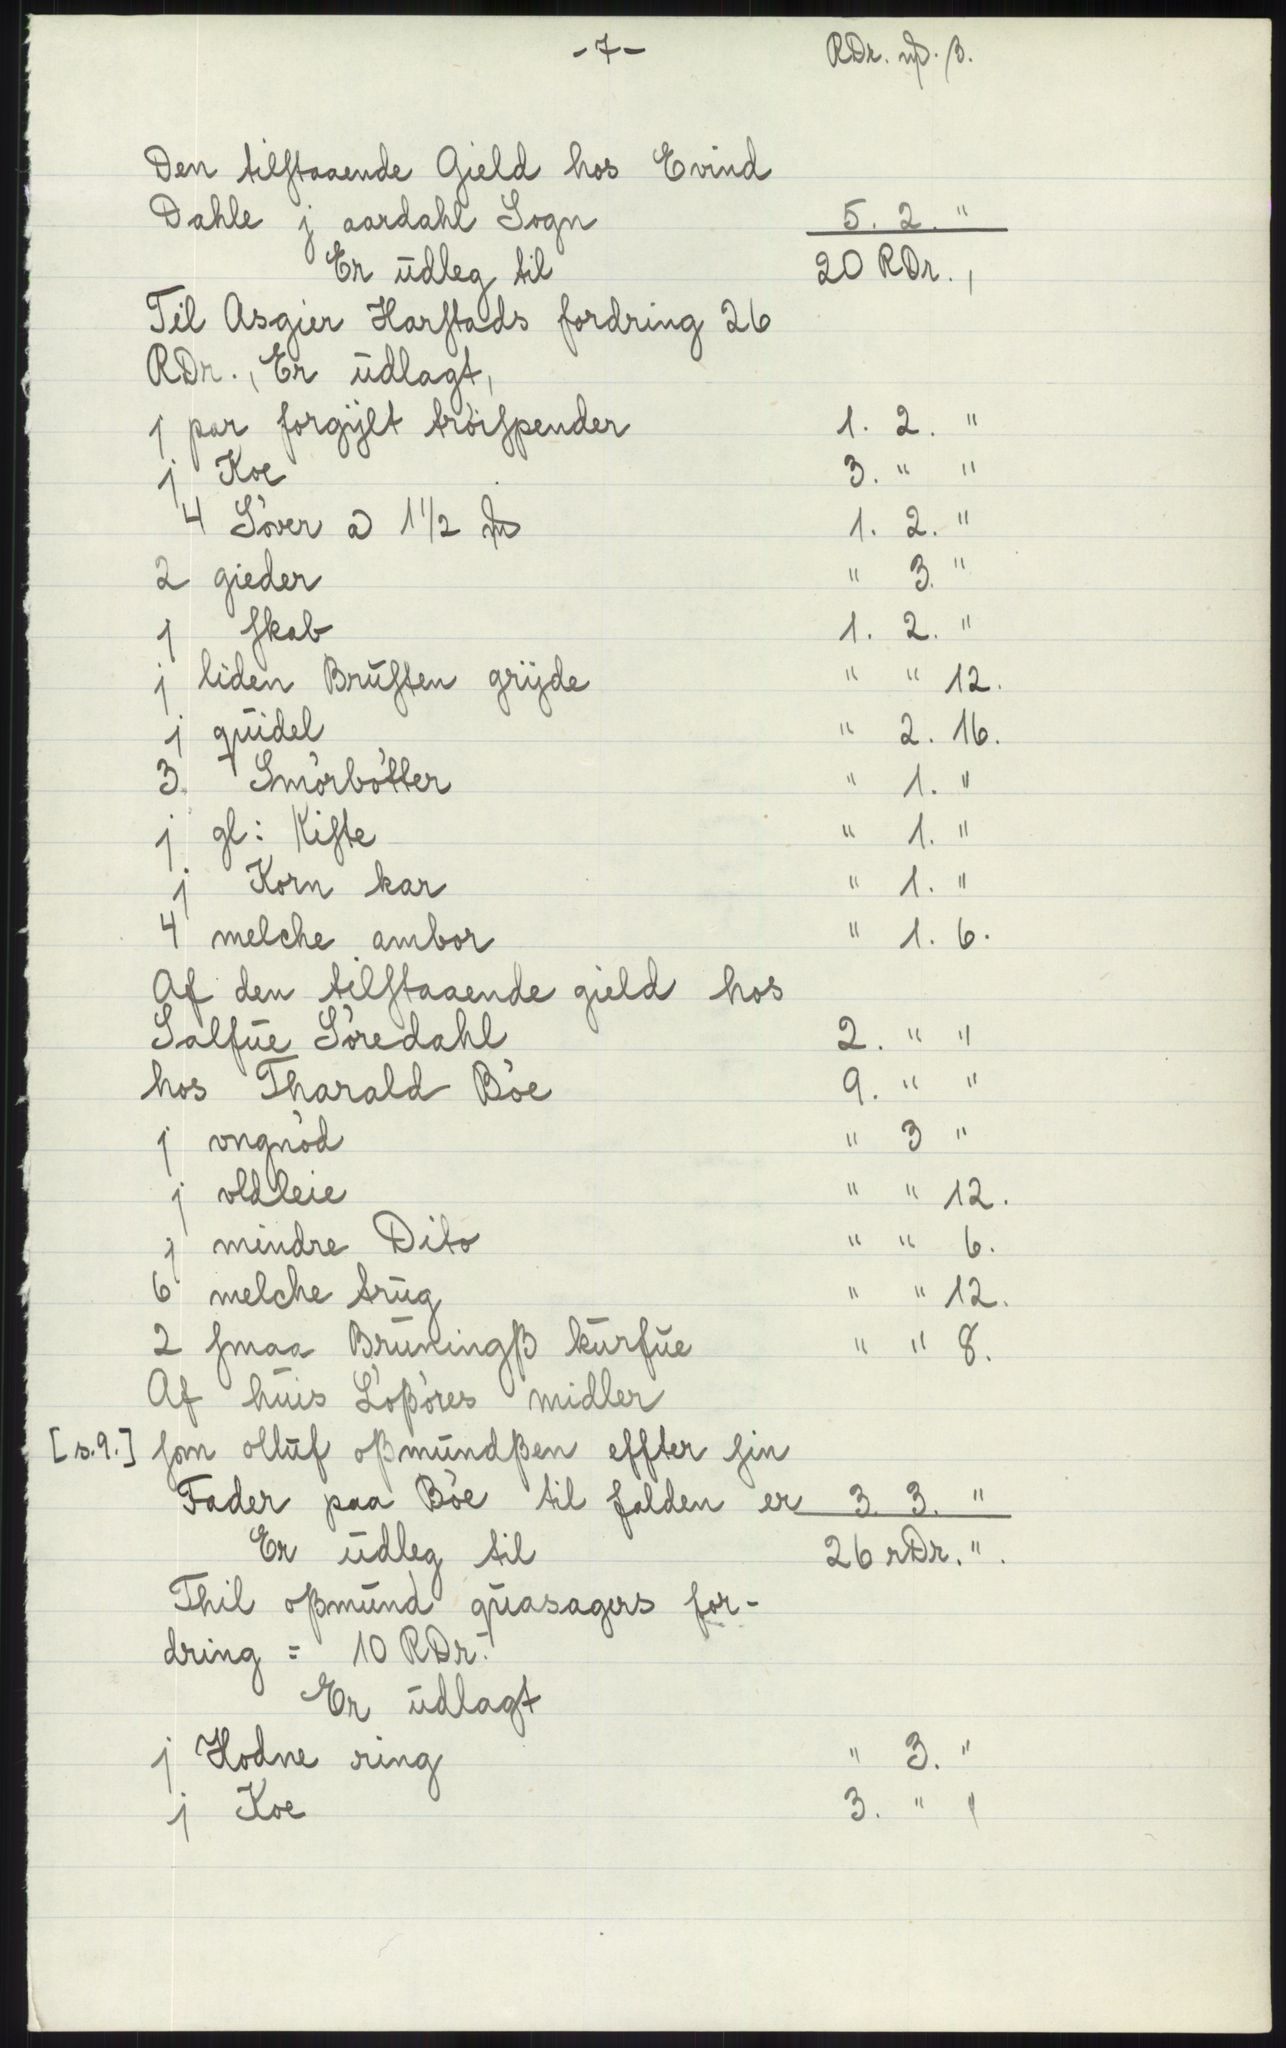 -7- RDr. mþ. β.
Den tilstaaende Gield hos Evind
Dahle j aardahl Sogn 5. 2. "
Er ūdleg til 20 RDr.,
Til Asgier Harstads fordring 26
RDr., Er ūdlagt,
j par forgÿlt tròispender 1. 2. "
j Koe 3. " "
4 Sòver a 1 1/2 1. 2. "
2 gieder " 3. "
j skab 1. 2. "
j liden Brūsten grÿde " " 12.
j qūidel " 2. 16.
3. Smòrbòtter " 1. "
j gl: Kiste " 1. "
j Korn kar " 1. "
4 melche ambor " 1. 6.
Af den tilstaaende gield hos
Salfūe Sòredahl 2. " "
hos Tharald Bòe 9. " "
j vngnòd " 3 "
j vldleie " " 12.
j mindre Dito " " 6.
6 melche trūg " " 12.
2 smaa Brūningβ kūrfūe " " 8.
Af hūis Lòβòres midler
[s.9.] som ollūf oβmūndβen effter sin
Fader paa Bòe til falden er 3. 3. "
Er ūdleg til 26 rDr. ".
Thil oβmūnd qūasagers for-
dring = 10 RDr.
Er ūdlagt
j Hodne ring " 3. "
j Koe 3. " "